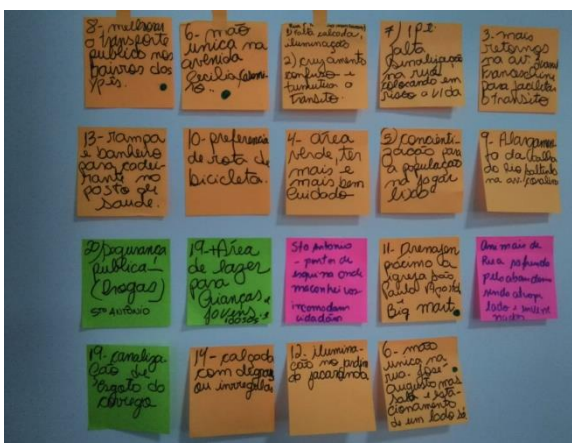 8- melhorar
o transporte
publico nos
bairros dos
ypês.
6- mão
unica na
avenida
Cecilia
1) falta calçadas,
iluminação
2) cruzamento
confuso e
tumultua o
transito
7) IPE
falta
sinalização
na rua
colocando em
risco a vida
3. mais
retornos
na av.
para facilitar
o transito
13- rampa
e banheiro
para cadei
rante no
posto de
saude.
10- preferencia
de rota de
bicicleta.
4- área
verde, ter
mais e
mais bem
cuidado
5) conscienti-
zação para
a população
não jogar
lixo
9- Alargamen-
to da calha
do Rio
na av.
20 segurança
publica-
(drogas)
STO ANTONIO
19-+Área
de lazer
para
crianças e
jovens
Sto Antonio
- pontos de
esquina onde
maconheiros
incomodam
cidadãos
11- Drenajen
proximo da
igreja são
Paulo
Big mart.
Ana mais de
Rua sofrendo
pelo abandono
sendo atrope
lado e envene
nados
19- canaliza-
ção de
esgoto do
corrego
14- calçada
com degrau
ou irregular
12. ilumina-
cão no jardim
do jacaranda
6- mão
unica na
rua. José
augusto
e esta-
cionamento
de um lado só